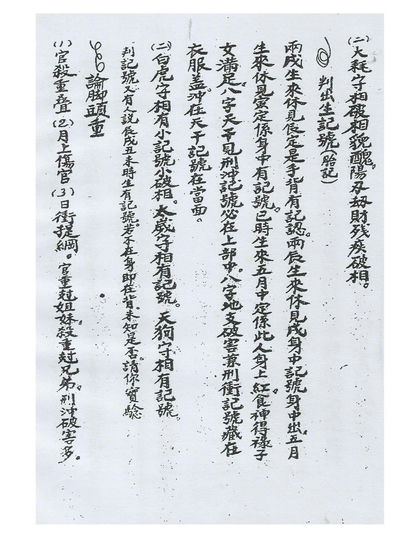 (二)大耗守相破相貌醜。陽刃刼財残疾破相。
判出生記號(胎記)
兩戌生來休見辰定是手背有記認。兩辰生來休見戌身中記號身中出。五月
生來休見寅定係身中有記號。巳時生來五月中定係此人身上紅。食神得祿子
女滿足。八字天干見刑冲記號必在上部中。八字地支破害兼刑衝記號藏在
衣服。盖冲在天干記號在當面。
(二)白虎守相有小記號小破相。太歲守相有記號。天狗守相有記號。
判記號又有人說辰戌丑未時生有記號若不在身即在背未知是否請你實驗
論脚頭重
(1)官殺重叠(2)月上傷官(3)日衝提綱。官重尅姐妹。殺重尅兄弟。刑沖破害多。